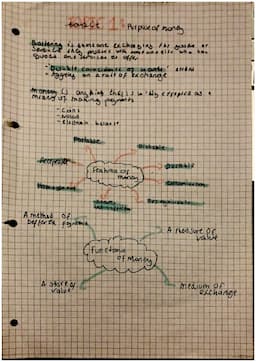 Purpose of money
Bartering is someone exchanging the goods or
service they produce with someone else who has
goods and services to offer
- Double coincidence of wants
- Agreeing on a rate of exchange
Money is anything that is widely accepted as a
means of making payments
- Coins
- Notes
- Electronic balances
Portable
Divisible
Acceptable
Durable
Features of
money
Homogenous
Recognisable
A method of
deferred payments
A measure of
value
Functions
of Money
A store of
value
Medium of
exchange